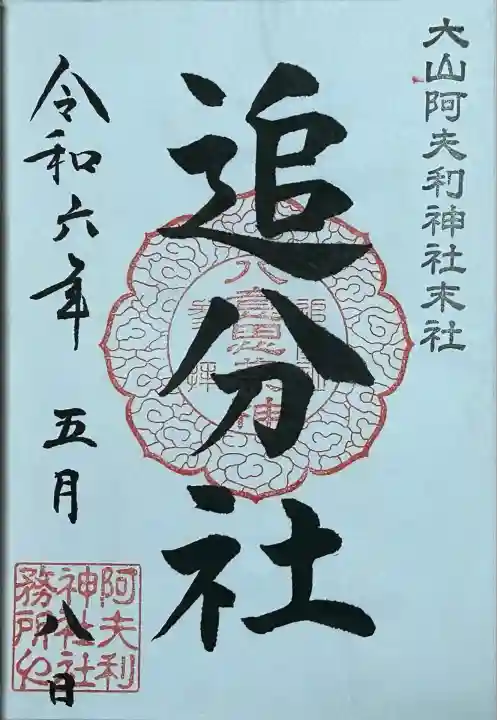 大山阿夫利神社末社
追分社
八意思兼神
令和六年 五月 八日
阿夫利
神社社
務所也